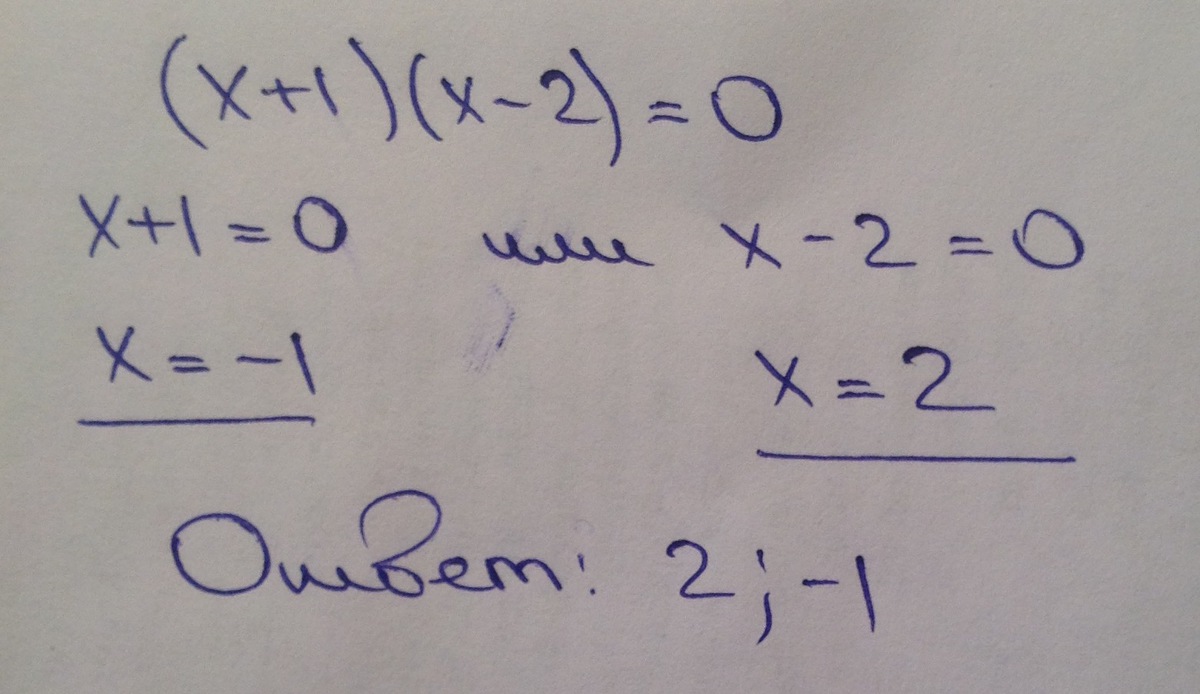 (x+1)(x-2)=0
x+1=0 или x-2=0
x=-1 x=2
Ответ: 2;-1